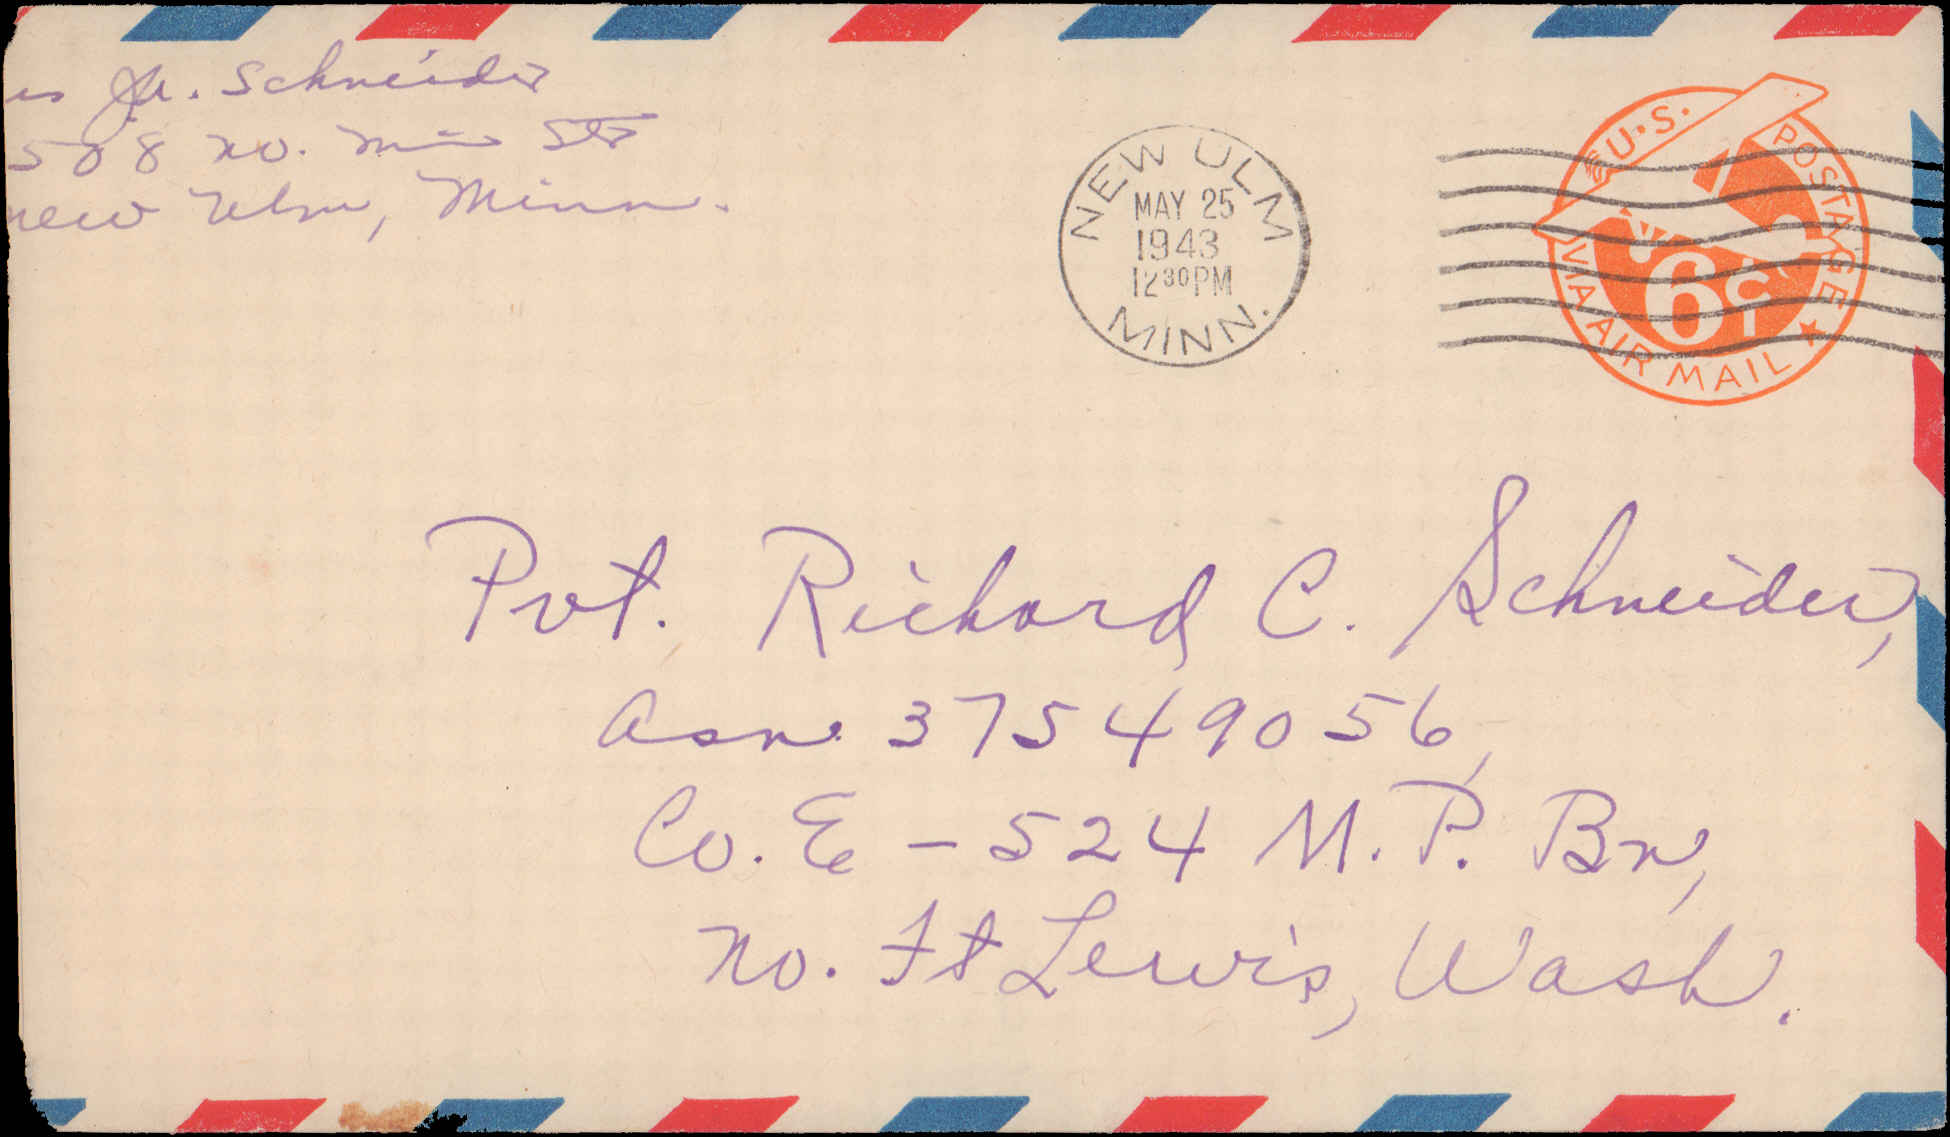 Ja. Schneider
508 no. Minn Str
new Ulm, Minn.
NEW ULM
MAY 25
1943
12 30 PM
MINN.
U.S. POSTAGE
6c
VIA AIR MAIL
Pvt. Richard C. Schneider,
asn. 37549056,
Co. E - 524 M. P. Bn,
no. Ft Lewis, Wash.